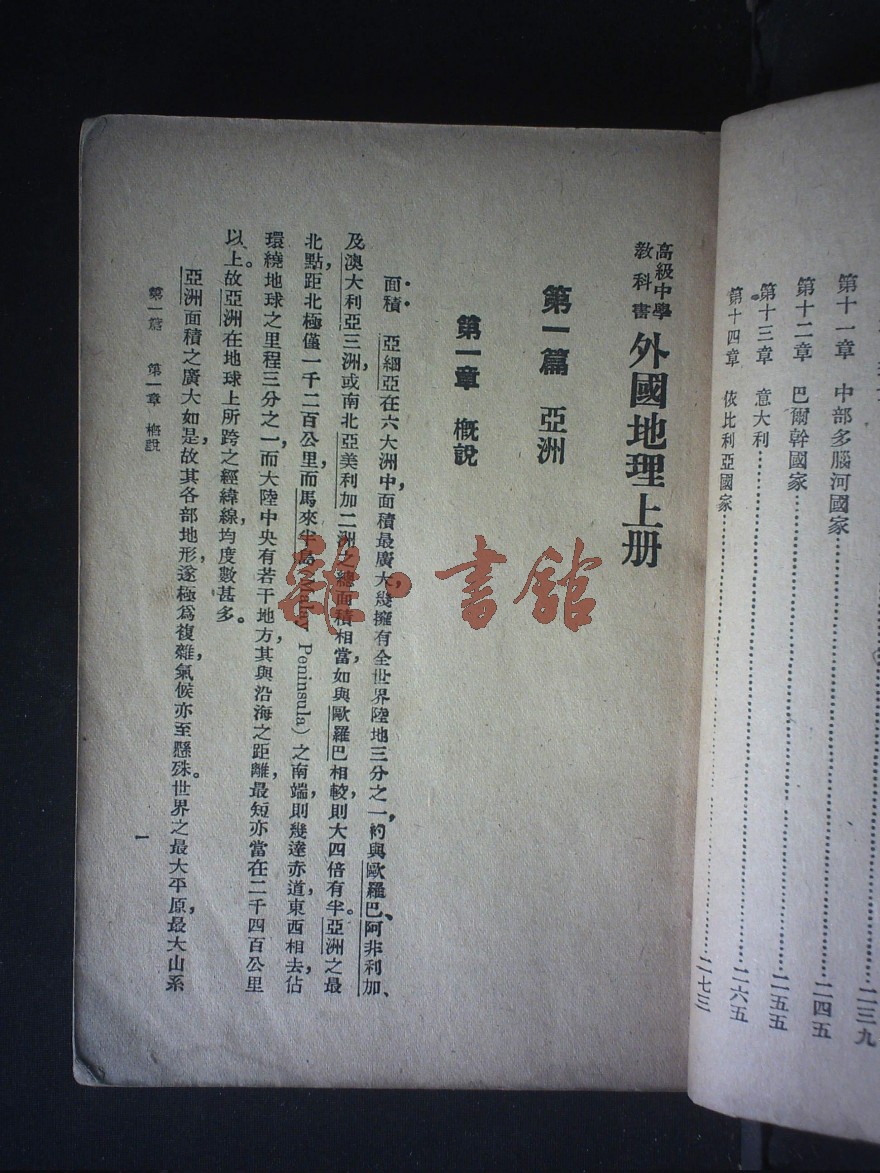 第十一章 中部多腦河國家……二三九
第十二章 巴爾幹國家……二四五
第十三章 意大利……二五五
第十四章 依比利亞國家……二六五
……二七三
高級中學
教科書
外國地理上册
第一篇 亞洲
第一章 概說
面積 亞細亞在六大洲中，面積最廣大，幾擁有全世界陸地三分之一，約與歐羅巴、阿非利加、
及澳大利亞三洲，或南北亞美利加二洲之總面積相當，如與歐羅巴相較，則大四倍有半。亞洲之最
北點，距北極僅一千二百公里，而馬來半島(Malay Peninsula)之南端，則幾達赤道，東西相去，佔
環繞地球之里程三分之一，而大陸中央有若干地方，其與沿海之距離，最短亦當在二千四百公里
以上。故亞洲在地球上所跨之經緯線，均度數甚多。
亞洲面積之廣大如是，故其各部地形，遂極爲複雜，氣候亦至懸殊。世界之最大平原，最大山系
第一篇 第一章 概說
一
雜·書館